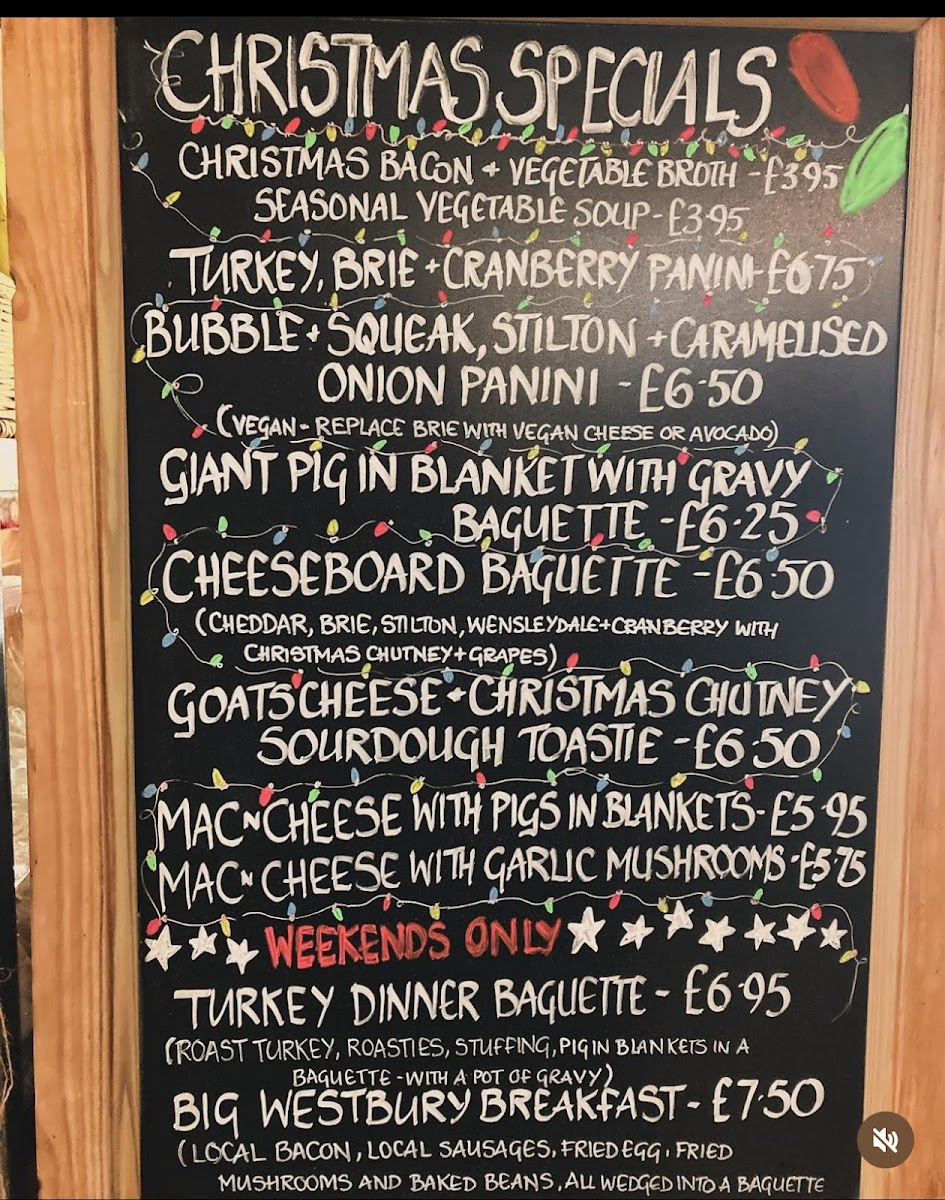 CHRISTMAS SPECIALS
CHRISTMAS BACON + VEGETABLE BROTH - £3.95
SEASONAL VEGETABLE SOUP - £3.95
TURKEY, BRIE + CRANBERRY PANINI - £6.75
BUBBLE + SQUEAK, STILTON + CARAMELISED
ONION PANINI - £6.50
(VEGAN - REPLACE BRIE WITH VEGAN CHEESE OR AVOCADO)
GIANT PIG IN BLANKET WITH GRAVY
BAGUETTE - £6.25
CHEESEBOARD BAGUETTE - £6.50
(CHEDDAR, BRIE, STILTON, WENSLEYDALE + CRANBERRY WITH
CHRISTMAS CHUTNEY + GRAPES)
GOATS CHEESE + CHRISTMAS CHUTNEY
SOURDOUGH TOASTIE - £6.50
MAC N CHEESE WITH PIGS IN BLANKETS - £5.95
MAC N CHEESE WITH GARLIC MUSHROOMS - £5.75
WEEKENDS ONLY
TURKEY DINNER BAGUETTE - £6.95
(ROAST TURKEY, ROASTIES, STUFFING, PIG IN BLANKETS IN A
BAGUETTE - WITH A POT OF GRAVY)
BIG WESTBURY BREAKFAST - £7.50
(LOCAL BACON, LOCAL SAUSAGES, FRIED EGG, FRIED
MUSHROOMS AND BAKED BEANS, ALL WEDGED INTO A BAGUETTE